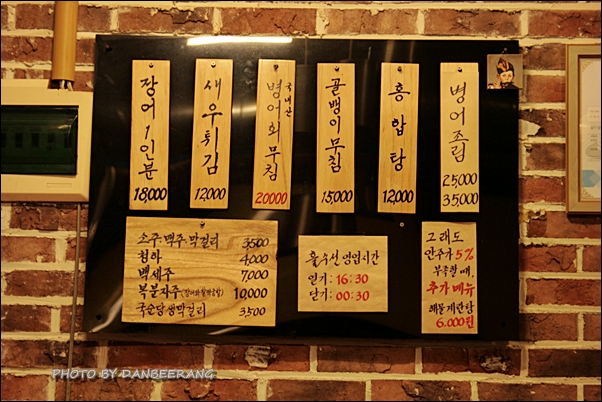 장어1인분
18,000
새우튀김
12,000
국내산
병어회무침
20000
골뱅이무침
15,000
홍합탕
12,000
병어조림
25,000
35,000
소주·맥주·막걸리 3,500
청하 4,000
백세주 7,000
복분자주 10,000
국순당쌀막걸리 3,500
영업시간
열기: 16:30
닫기: 00:30
그래도
안주가 5%
부족할 때,
추가 메뉴
해물계란탕
6.000원
PHOTO BY DANBEERANG